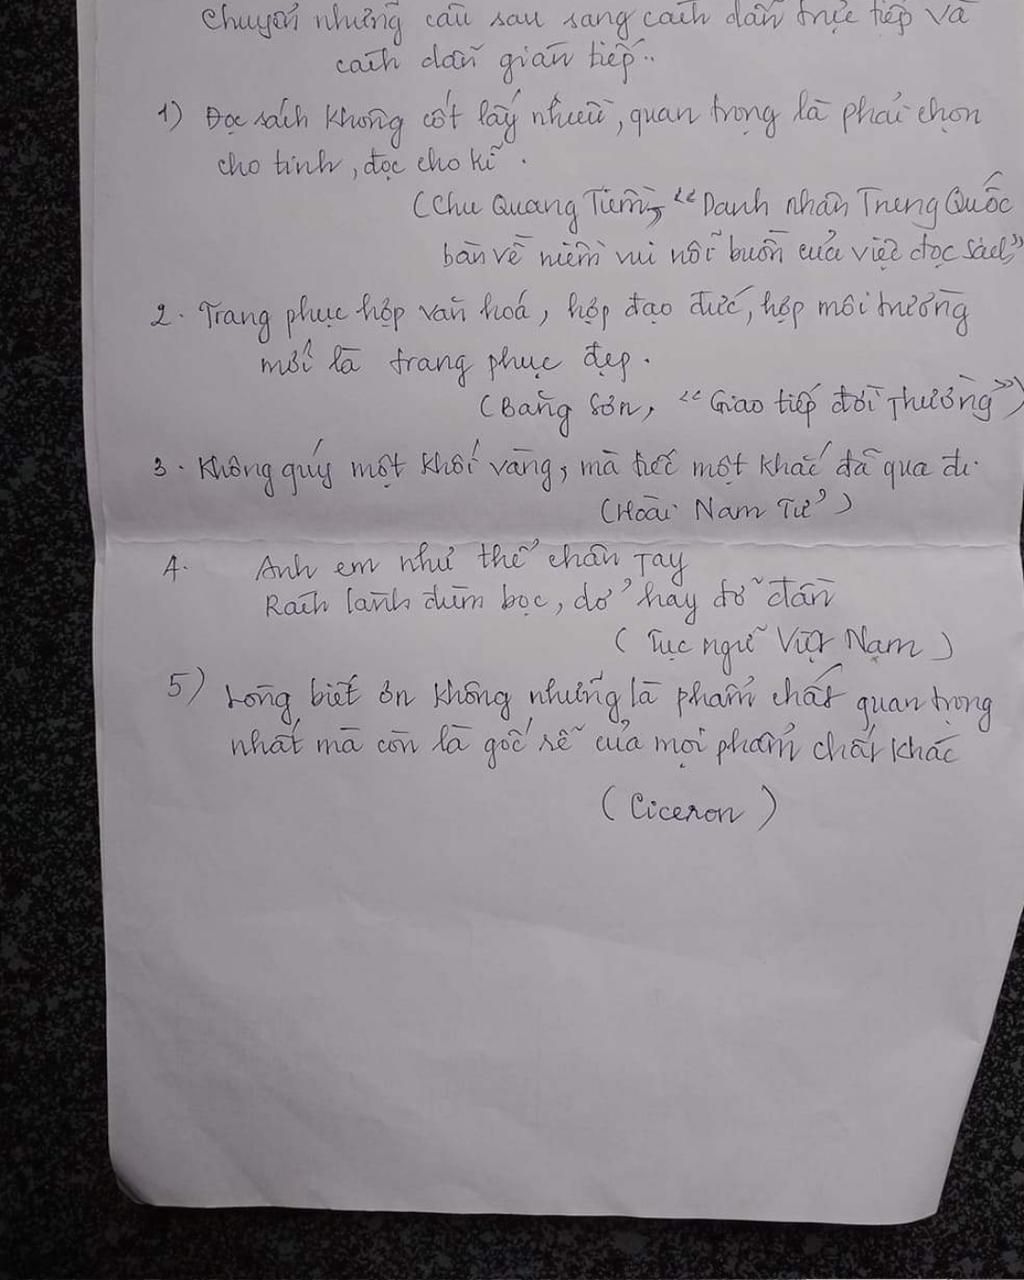 Chuyển những câu sau sang cách dẫn trực tiếp và
cách dẫn gián tiếp..
1) Đọc sách không cốt lấy nhiều, quan trọng là phải chọn
cho tinh, đọc cho kĩ.
(Chu Quang Tiềm, "Danh nhân Trung Quốc
bàn về niềm vui nỗi buồn của việc đọc sách")
2. Trang phục hợp văn hoá, hợp đạo đức, hợp môi trường
mới là trang phục đẹp.
(Băng Sơn, "Giao tiếp đời Thường")
3. Không quý một khối vàng, mà tiếc một khắc đã qua đi.
(Hoài Nam Tử)
4. Anh em như thể chân Tay
Rách lành đùm bọc, dở hay đỡ đần
(Tục ngữ Việt Nam)
5) Lòng biết ơn không những là phẩm chất quan trọng
nhất mà còn là gốc rễ của mọi phẩm chất khác
(Ciceron)